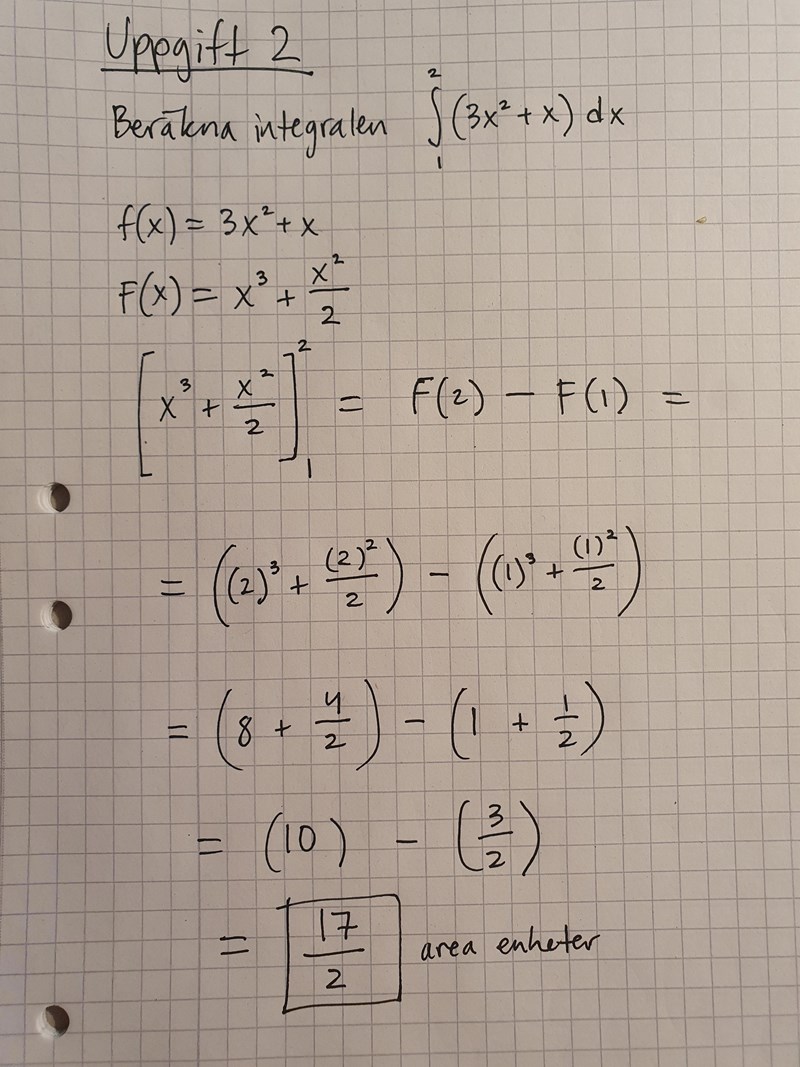 Uppgift 2
Beräkna integralen ∫₁² (3x² + x) dx
f(x) = 3x² + x
F(x) = x³ + x²/2
[x³ + x²/2]₁² = F(2) − F(1) =
= ((2)³ + (2)²/2) − ((1)³ + (1)²/2)
= (8 + 4/2) − (1 + 1/2)
= (10) − (3/2)
= 17/2 area enheter